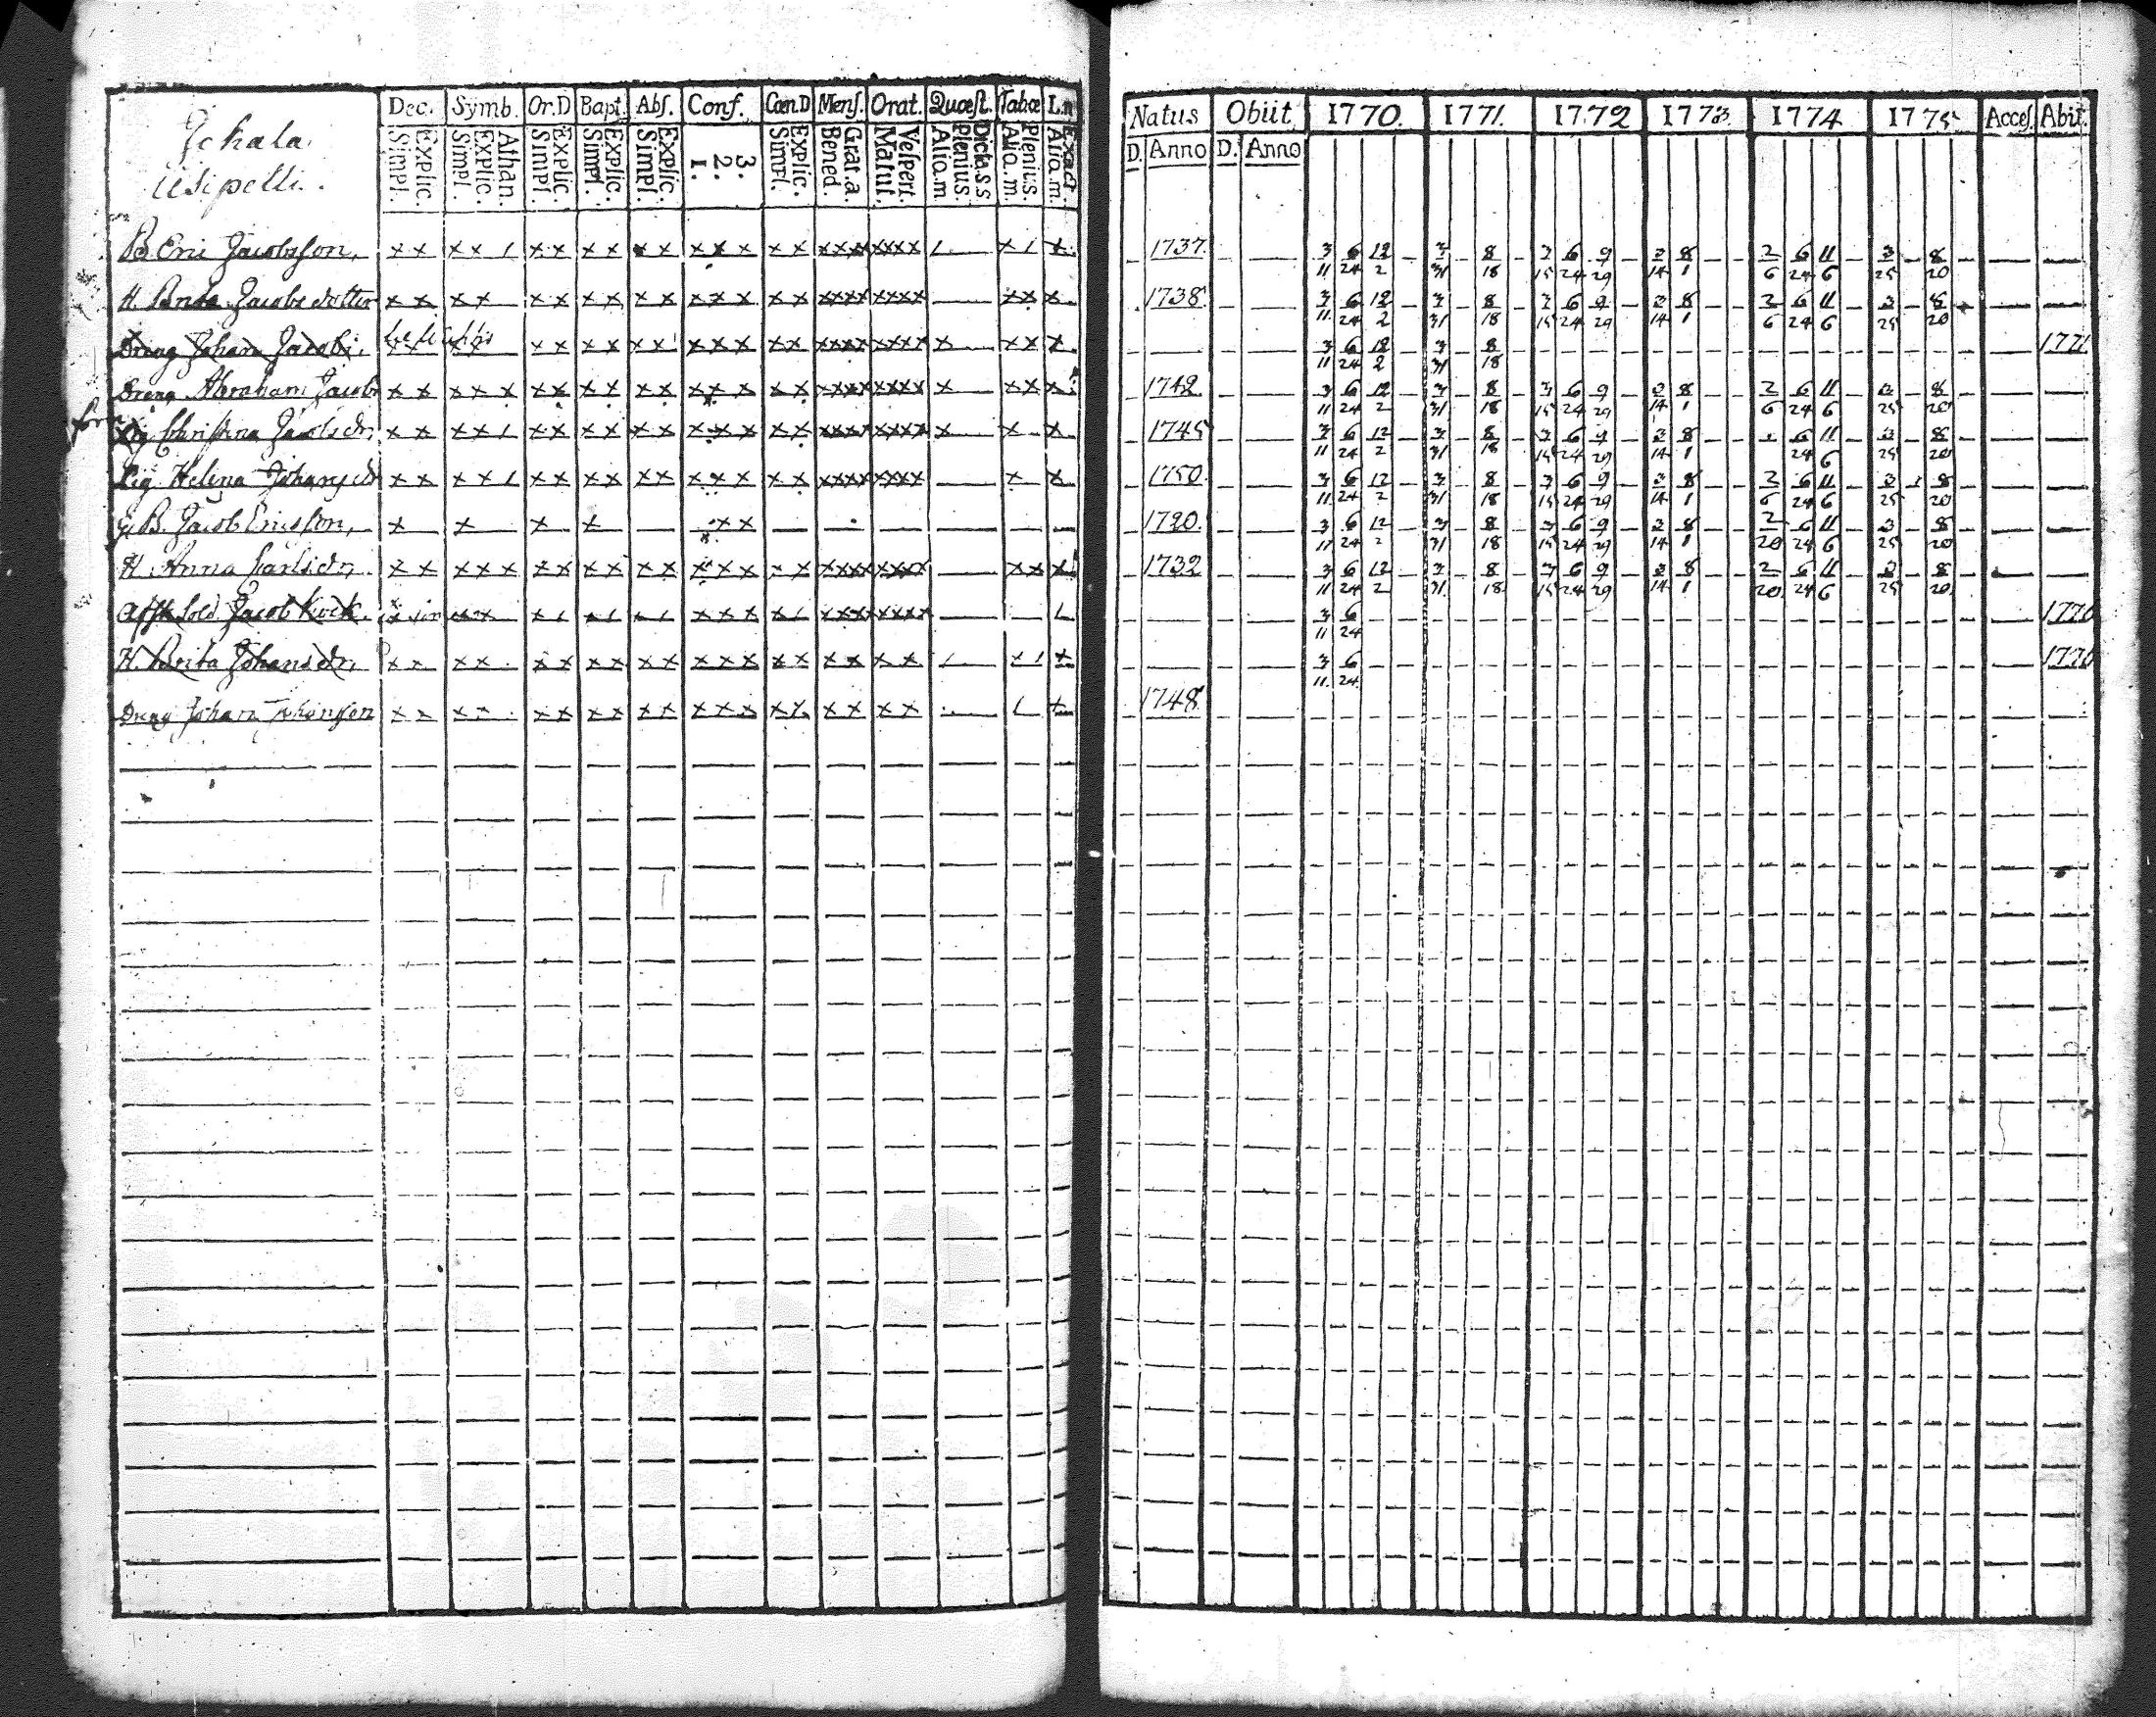 Dec. Symb. Or.D Bapt. Abs. Conf. Cœn.D Mens. Orat. Quæst. Tabœ L.n
Simpl. Explic. Simpl. Explic. Athan. Simpl. Explic. Simpl. Explic. Simpl. Explic. 1. 2. 3. Simpl. Explic. Bened. Grat. a. Matut. Vespert. Alio. m Plenius. Dicta. s s Alio. m. Plenius. Alio. m. Exact.
Natus Obiit 1770. 1771. 1772 1773. 1774 1775. Acces. Abit.
D. Anno D. Anno
B. Eric Jacobsson, x x x x 1 x x x x x x x x x x x xxxx xxxx 1 x 1 x 1737.
3 6 12 3 8 3 6 9 3 8 2 6 11 3 8
11 24 2 31 18 15 24 29 14 1 6 24 6 25 20
H. Brita Jacobsdotter x x x x x x x x x x x x x x x xxxx xxxx x x x 1738.
3 6 12 3 8 3 6 9 3 8 2 6 11 3 8
11 24 2 31 18 15 24 29 14 1 6 24 6 25 20
Dreng Johan Jacobs. x x x x x x x x x x x x x x x xxxx xxxx x x x x 1771.
3 6 12 3 8
11 24 2 31 18
Dreng Abraham Jacobs x x x x x x x x x x x x x x x x xxxx xxxx x x x x 1742
3 6 12 3 8 3 6 9 3 8 2 6 11 3 8
11 24 2 31 18 15 24 29 14 1 6 24 6 25 20
Pig Christina Jacobsdr, x x x x 1 x x x x x x x x x x x xxxx xxxx x x x 1745
3 6 12 3 8 3 6 9 3 8 6 11 3 8
11 24 2 31 18 15 24 29 14 1 24 6 25 20
Pig. Helena Johansd x x x x 1 x x x x x x x x x x x xxxx xxxx x x 1750.
3 6 12 3 8 3 6 9 3 8 2 6 11 3 8
11 24 2 31 18 15 24 29 14 1 6 24 6 25 20
B. Jacob Ericsson, x x x x x x 1720.
3 6 12 3 8 3 6 9 3 8 2 6 11 3 8
11 24 2 31 18 15 24 29 14 1 20 24 6 25 20
H. Anna Carlsdr, x x x x x x x x x x x x x x x x xxxx xxxx x x x 1732
3 6 12 3 8 3 6 9 3 8 2 6 11 3 8
11 24 2 31 18 15 24 29 14 1 20 24 6 25 20
Afsk Sold Jacob Kock. x 1 x 1 x 1 x x x x 1 xxxx xxxx 1 1770
3 6
11 24
H. Brita Johansdr, x x x x x x x x x x x x x x x x x x x 1 x 1 x 1770
3 6
11. 24.
Dreng Johan Johansson x x x x x x x x x x x x x x x x x x x 1 x 1748.